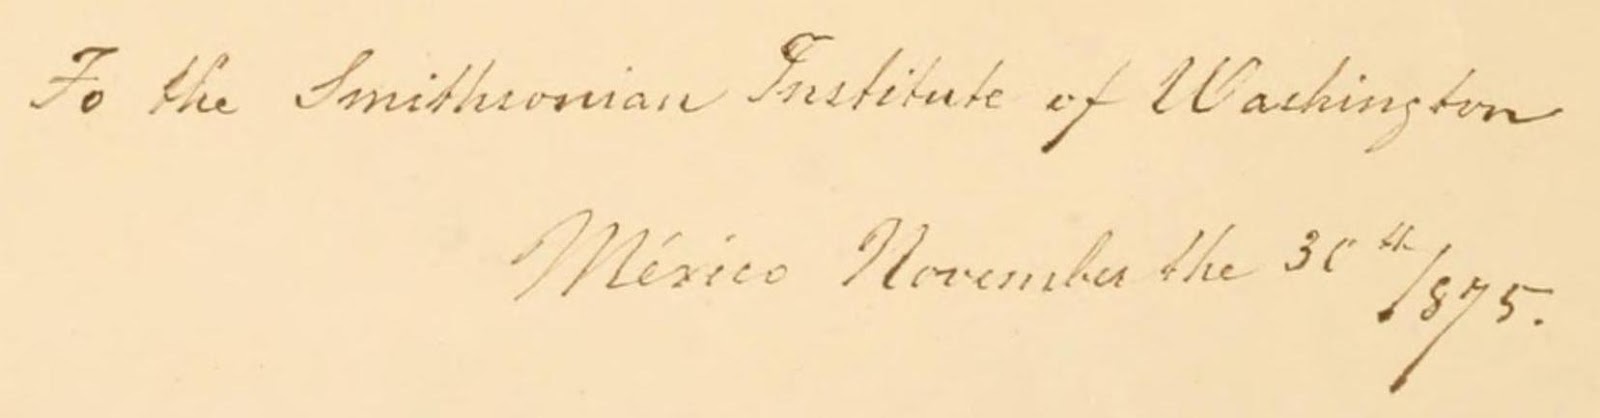 To the Smithsonian Institute of Washington
México November the 30th 1875.